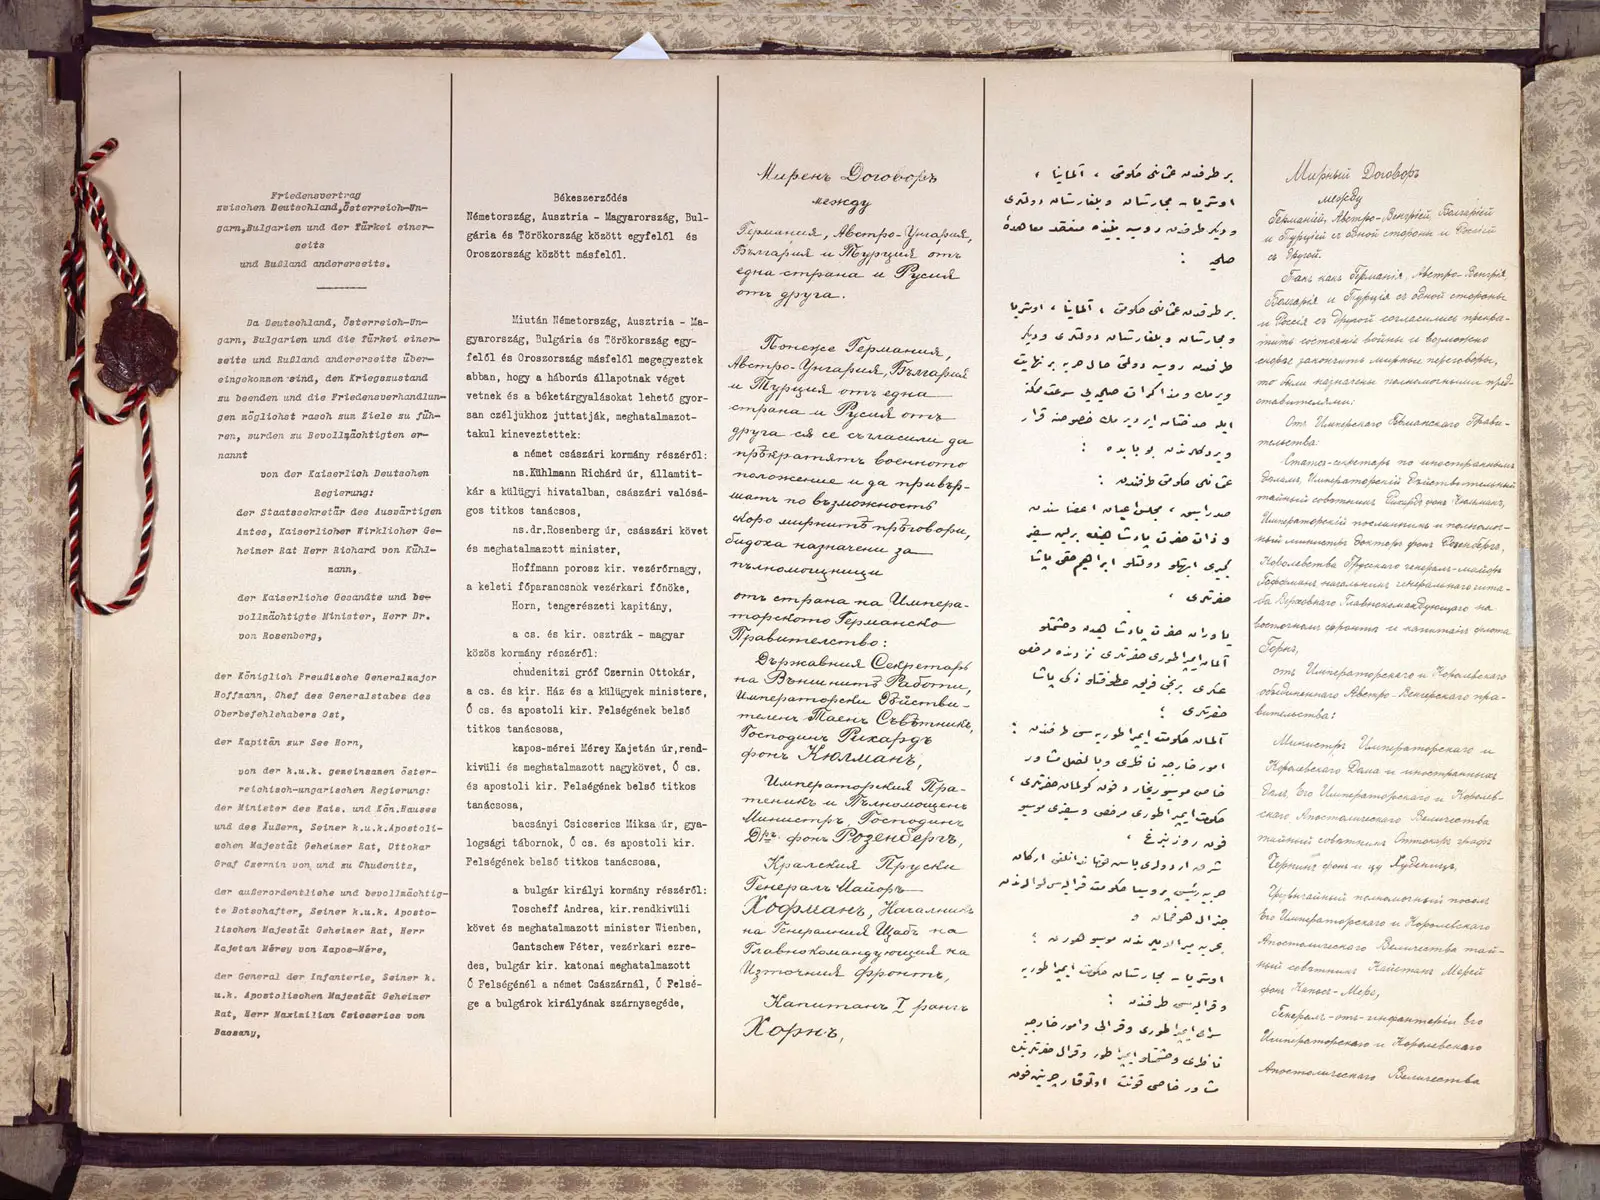 Friedensvertrag
zwischen Deutschland, Österreich-Un-
garn, Bulgarien und der Türkei einer-
seits
und Rußland andererseits.
Da Deutschland, Österreich-Un-
garn, Bulgarien und die Türkei einer-
seits und Rußland andererseits über-
eingekommen sind, den Kriegszustand
zu beenden und die Friedensverhandlun-
gen möglichst rasch zum Ziele zu füh-
ren, wurden zu Bevollmächtigten er-
nannt
von der Kaiserlich Deutschen
Regierung:
der Staatssekretär des Auswärtigen
Amtes, Kaiserlicher Wirklicher Ge-
heimer Rat Herr Richard von Kühl-
mann,
der Kaiserliche Gesandte und be-
vollmächtigte Minister, Herr Dr.
von Rosenberg,
der Königlich Preußische Generalmajor
Hoffmann, Chef des Generalstabes des
Oberbefehlshabers Ost,
der Kapitän zur See Horn,
von der k.u.k. gemeinsamen öster-
reichisch-ungarischen Regierung:
der Minister des Kais. und Kön. Hauses
und des Äußern, Seiner k.u.k. Apostoli-
schen Majestät Geheimer Rat, Ottokar
Graf Czernin von und zu Chudenitz,
der außerordentliche und bevollmächtig-
te Botschafter, Seiner k.u.k. Aposto-
lischen Majestät Geheimer Rat, Herr
Kajetan Mérey von Kapos-Mére,
der General der Infanterie, Seiner k.
u.k. Apostolischen Majestät Geheimer
Rat, Herr Maximilian Csicserics von
Bacsany,
Békeszerződés
Németország, Ausztria - Magyarország, Bul-
gária és Törökország között egyfelől és
Oroszország között másfelől.
Miután Németország, Ausztria - Ma-
gyarország, Bulgária és Törökország egy-
felől és Oroszország másfelől megegyeztek
abban, hogy a háborús állapotnak véget
vetnek és a béketárgyalásokat lehető gyor-
san céljukhoz juttatják, meghatalmazot-
takul kineveztettek:
a német császári kormány részéről:
ns.Kühlmann Richárd úr, államtit-
kár a külügyi hivatalban, császári valósá-
gos titkos tanácsos,
ns.dr.Rosenberg úr, császári követ
és meghatalmazott minister,
Hoffmann porosz kir. vezérőrnagy,
a keleti főparancsnok vezérkari főnöke,
Horn, tengerészeti kapitány,
a cs. és kir. osztrák - magyar
közös kormány részéről:
chudenitzi gróf Czernin Ottokár,
a cs. és kir. Ház és a külügyek ministere,
Ő cs. és apostoli kir. Felségének belső
titkos tanácsosa,
kapos-mérei Mérey Kajetán úr, rend-
kivüli és meghatalmazott nagykövet, Ő cs.
és apostoli kir. Felségének belső titkos
tanácsosa,
bacsányi Csicserics Miksa úr, gya-
logsági tábornok, Ő cs. és apostoli kir.
Felségének belső titkos tanácsosa,
a bulgár királyi kormány részéről:
Toscheff Andrea, kir.rendkivüli
követ és meghatalmazott minister Wienben,
Gantschew Péter, vezérkari ezre-
des, bulgár kir. katonai meghatalmazott
Ő Felségénél a német Császárnál, Ő Felsé-
ge a bulgárok királyának szárnysegéde,
Миренъ Договоръ
между
Германия, Австро-Унгария,
България и Турция отъ
една страна и Русия
отъ друга.
Понеже Германия,
Австро-Унгария, България
и Турция отъ една
страна и Русия отъ
друга сѫ се съгласили да
прѣкратятъ военното
положение и да привър-
шатъ по възможность
скоро мирнитѣ прѣговори,
бидоха назначени за
пълномощници
отъ страна на Импера-
торското Германско
Правителство:
Държавния Секретарь
на Външнитѣ Работи,
Императорски Дѣйстви-
теленъ Таенъ Съвѣтникъ,
Господинъ Рихардъ
фонъ Кюлманъ,
Императорския Пра-
теникъ и Пълномощенъ
Министръ, Господинъ
Д-ръ фонъ Розенбергъ,
Кралския Пруски
Генералъ Майоръ
Хофманъ, Началникъ
на Генералния Щабъ на
Главнокомандующия на
Източния фронтъ,
Капитанъ I рангъ
Хорнъ,
بر طرفدن عثمانلی حکومتی ، آلمانیا ،
اوستریا - مجارستان و بلغارستان دولتلری
و دیگر طرفدن روسیه بیننده منعقد معاهدهٔ
صلحیه :
بر طرفدن عثمانلی حکومتی ، آلمانیا ، اوستریا
و مجارستان و بلغارستان دولتلری و دیگر
طرفدن روسیه دولتی حال حربه بر نهایت
ویرمك و مذاکرات صلحیه یی سرعت ممکنه
ایله حد ختامه ایردیرمك خصوصنه قرار
ویردکلرندن بو بابده :
عثمانلی حکومتی طرفندن :
صدر اسبق ، مجلس اعیان اعضاسندن
و ذات حضرت پادشاهینك برلین سفیر
کبیری ابهتلو دولتلو ابراهیم حقی پاشا
حضرتلری ،
یاوران حضرت پادشاهیدن و حشمتلو
آلمانیا ایمپراطوری حضرتلری نزدنده مرخص
عسکری برنجی فریق عطوفتلو زکی پاشا
حضرتلری ؛
آلمان حکومت ایمپراطوریه سی طرفندن :
امور خارجیه ناظری و بالفعل مشاور
خاص موسیو ریخارد فون کولمان حضرتلری ،
حکومت ایمپراطوری مرخصی و سفیری موسیو
فون روزنبرغ ،
شرق اردولری باش قوماندانلغی ارکان
حربیه رئیسی پروسیا حکومت قرالیه سی لوالرندن
جنرال هوفمان و
بحریه میرالایلرندن موسیو هورن ؛
اوستریا - مجارستان حکومت ایمپراطوریه
و قرالیه سی طرفندن :
سرای ایمپراطوری و قرالی و امور خارجیه
ناظری و حشمتلو ایمپراطور و قرال حضرتلرینك
مشاور خاصی قونت اوتوقار چرنین فون
Мирный Договоръ
между
Германіей, Австро-Венгріей, Болгаріей
и Турціей съ одной стороны и Россіей
съ другой.
Такъ какъ Германія, Австро-Венгрія,
Болгарія и Турція съ одной стороны
и Россія съ другой согласились прекра-
тить состояніе войны и возможно
скорѣе закончить мирные переговоры,
то были назначены полномочными пред-
ставителями:
Отъ Имперскаго Германскаго Прави-
тельства:
Статсъ-секретарь по иностраннымъ
дѣламъ, Императорскій Дѣйствительный
тайный совѣтникъ Рихардъ фонъ Кюльманъ,
Императорскій посланникъ и полномоч-
ный министръ докторъ фонъ Розенбергъ,
Королевства Прусскаго генералъ-майоръ
Гофманъ, начальникъ генеральнаго шта-
ба Верховнаго Главнокомандующаго на
восточномъ фронтѣ и капитанъ флота
Горнъ,
отъ Императорскаго и Королевскаго
объединеннаго Австро-Венгерскаго пра-
вительства:
Министръ Императорскаго и
Королевскаго Дома и иностранныхъ
дѣлъ, Его Императорскаго и Королев-
скаго Апостолическаго Величества
тайный совѣтникъ Оттокаръ графъ
Чернинъ фонъ и цу Худеницъ,
Чрезвычайный полномочный посолъ
Его Императорскаго и Королевскаго
Апостолическаго Величества тай-
ный совѣтникъ Кайетанъ Мерей
фонъ Капосъ-Мере,
Генералъ-отъ-инфантеріи Его
Императорскаго и Королевскаго
Апостолическаго Величества